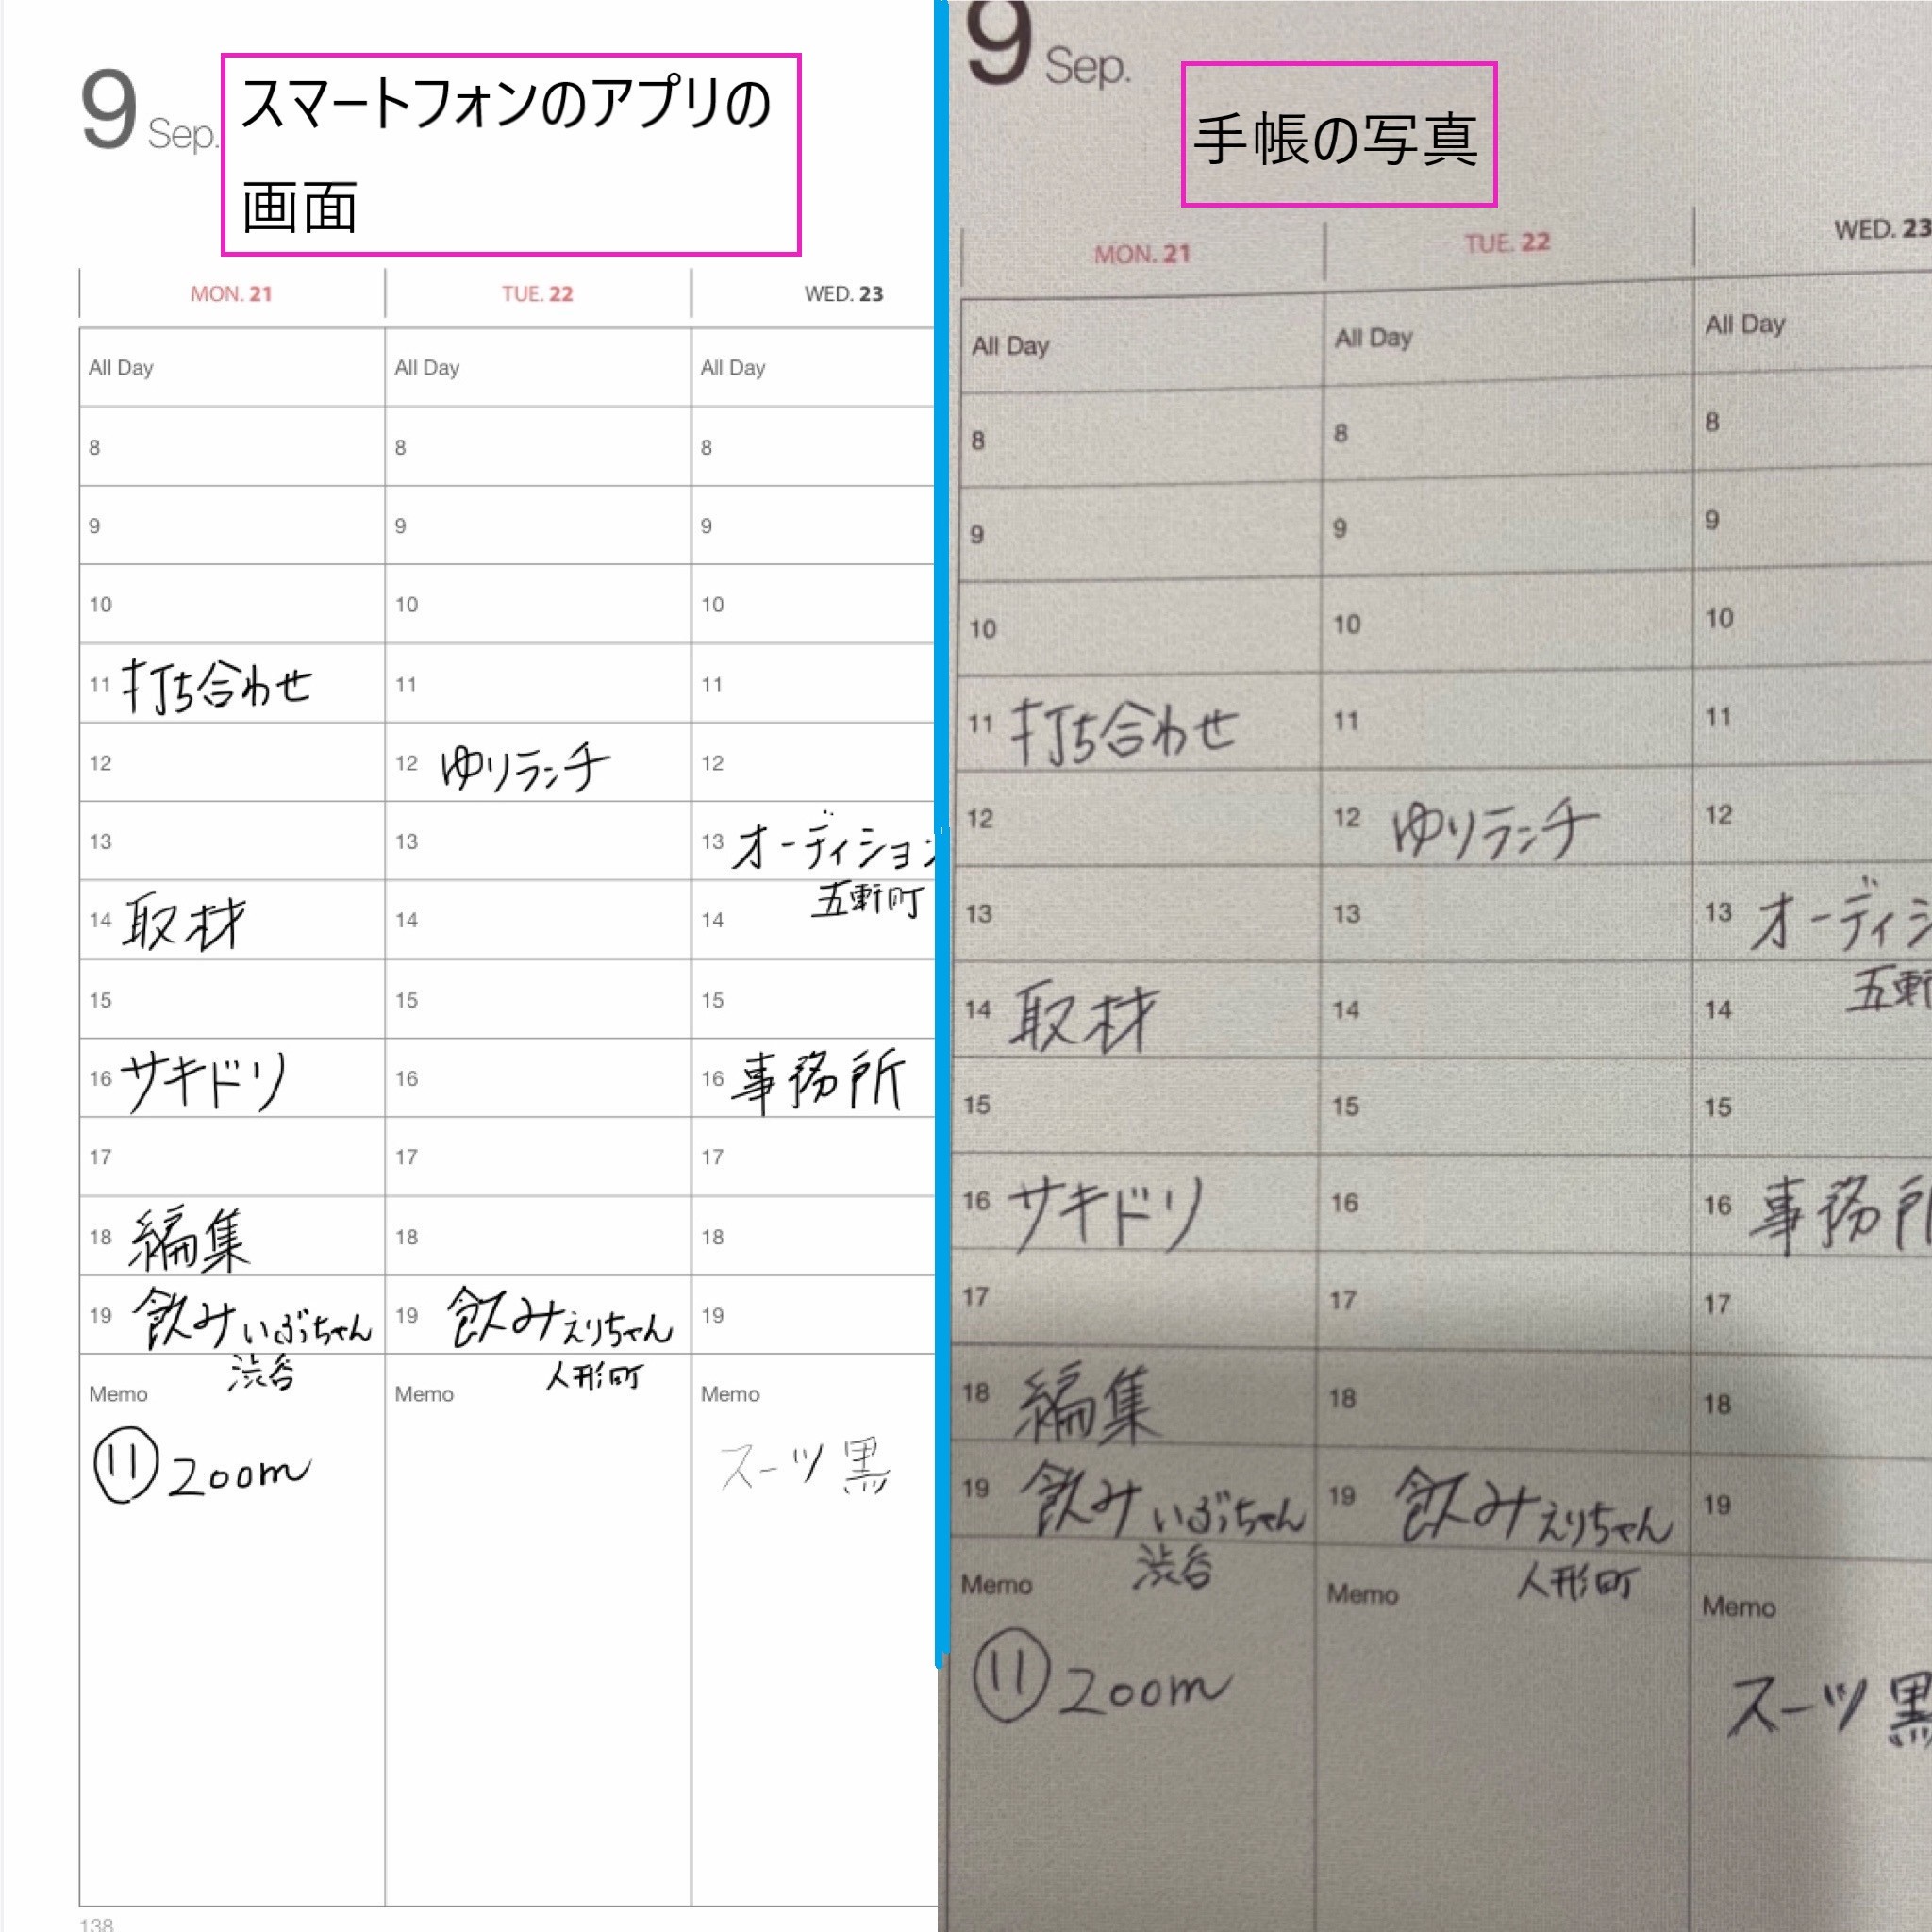 9 Sep.
スマートフォンのアプリの
画面
MON. 21 TUE. 22 WED. 23
All Day All Day All Day
8 8 8
9 9 9
10 10 10
11 打ち合わせ 11 11
12 12 ゆりランチ 12
13 13 13 オーディション
五軒町
14 取材 14 14
15 15 15
16 サキドリ 16 16 事務所
17 17 17
18 編集 18 18
19 飲み いぶちゃん 19 飲み えりちゃん 19
渋谷 人形町
Memo Memo Memo
⑪ zoom スーツ 黒
138
9 Sep.
手帳の写真
MON. 21 TUE. 22 WED. 23
All Day All Day All Day
8 8 8
9 9 9
10 10 10
11 打ち合わせ 11 11
12 12 ゆりランチ 12
13 13 13 オーディシ
五軒
14 取材 14 14
15 15 15
16 サキドリ 16 16 事務所
17 17 17
18 編集 18 18
19 飲み いぶちゃん 19 飲み えりちゃん 19
渋谷 人形町
Memo Memo Memo
⑪ zoom スーツ 黒